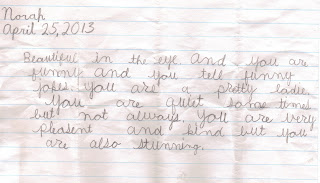 Norah
April 25, 2013
Beautiful in the eye. And you are
funny and you tell funny
jokes. you are a pretty ladie.
You are quiet some times
but not always. You are very
pleasent and kind but you
are also stunning.